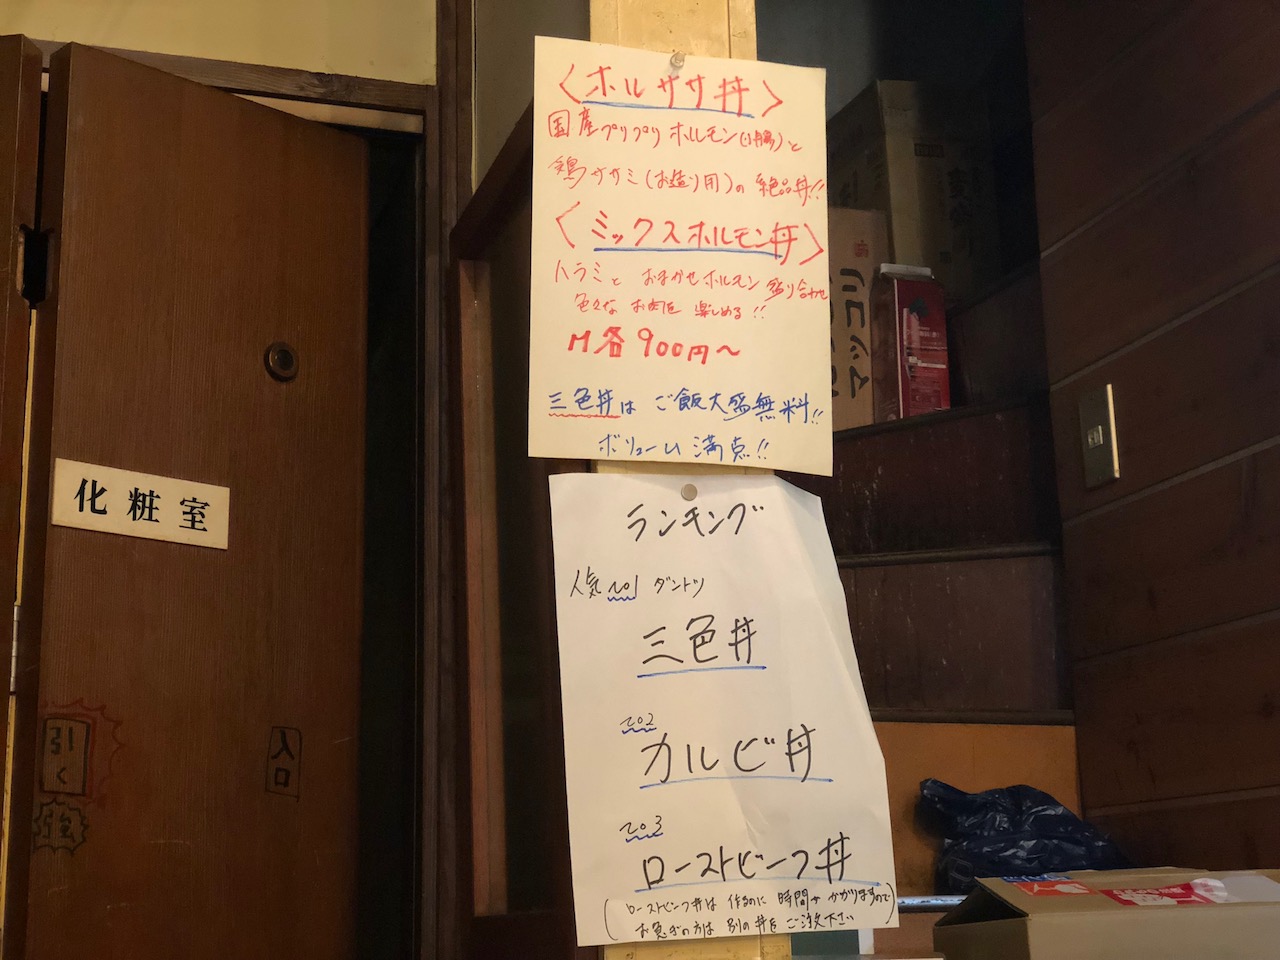 〈ホルササ丼〉
国産プリプリホルモン(小腸)と
鶏ササミ(お造り用)の絶品丼!!
〈ミックスホルモン丼〉
ハラミとおまかせホルモン盛り合わせ
色々なお肉を楽しめる!!
M各900円〜
三色丼はご飯大盛無料!!
ボリューム満点!!
ランキング
人気No1ダントツ
三色丼
No2
カルビ丼
No3
ローストビーフ丼
(ローストビーフ丼は作るのに時間がかかりますので
お急ぎの方は別の丼をご注文下さい)
化粧室
引く
入口
マッコリ